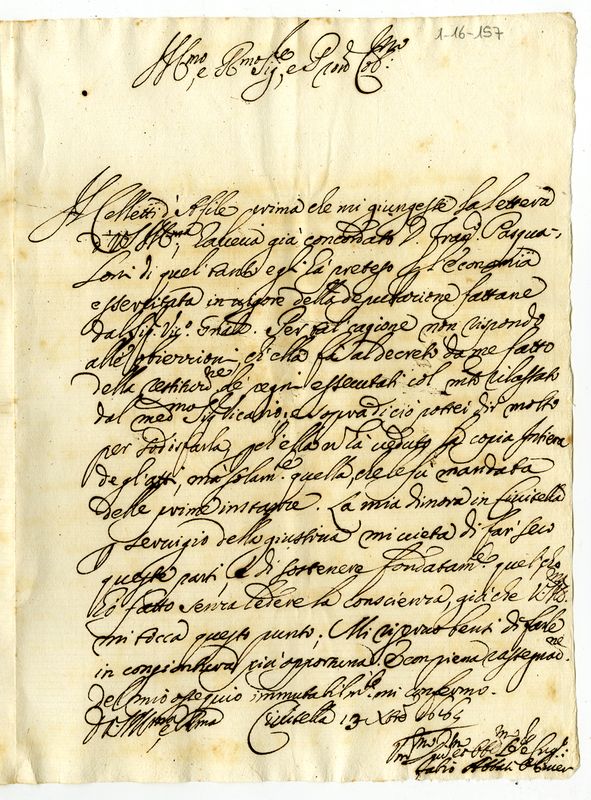 1-16-157
Ill.mo e R.mo Sig.re e P.ron Col.mo
Il Celletti d'Afile prima che mi giungesse la lettera
di V.S. Ill.ma, haveva già concordato D. Fran.co Pasqua-
loni di quel tanto egli hà preteso p l'economia
essercitata in vigore della deputazione fattane
dal Sig. Vic.o Gn̄ale. Per tal cagione non rispondo
alle obiezzioni ch'ella fà al decreto da me fatto
della restituz.ne de pegni essecutati col mto rilassato
dal med.mo Sig. Vicario; e sopra di ciò potrei dir molto
per sodisfarla, p ch'ella n̄ hà veduto la copia intiera
degl'atti, mà solam.e quella, che le fù mandata
delle prime instanze. La mia dimora in Civitella
p servigio della giustizia mi vieta di far seco
queste parti, e di sostenere fondatam.e quel che
hò fatto senza ledere la conscienza, già che V.S. Ill.ma
mi tocca questo punto; Mi riserbo bensì di farle
in congiontura più opportuna. E con piena rassegnaz.ne
del mio ossequio immutabilm.e mi confermo.
D V.S. Ill.ma e R.ma Civitella 13 Xbre